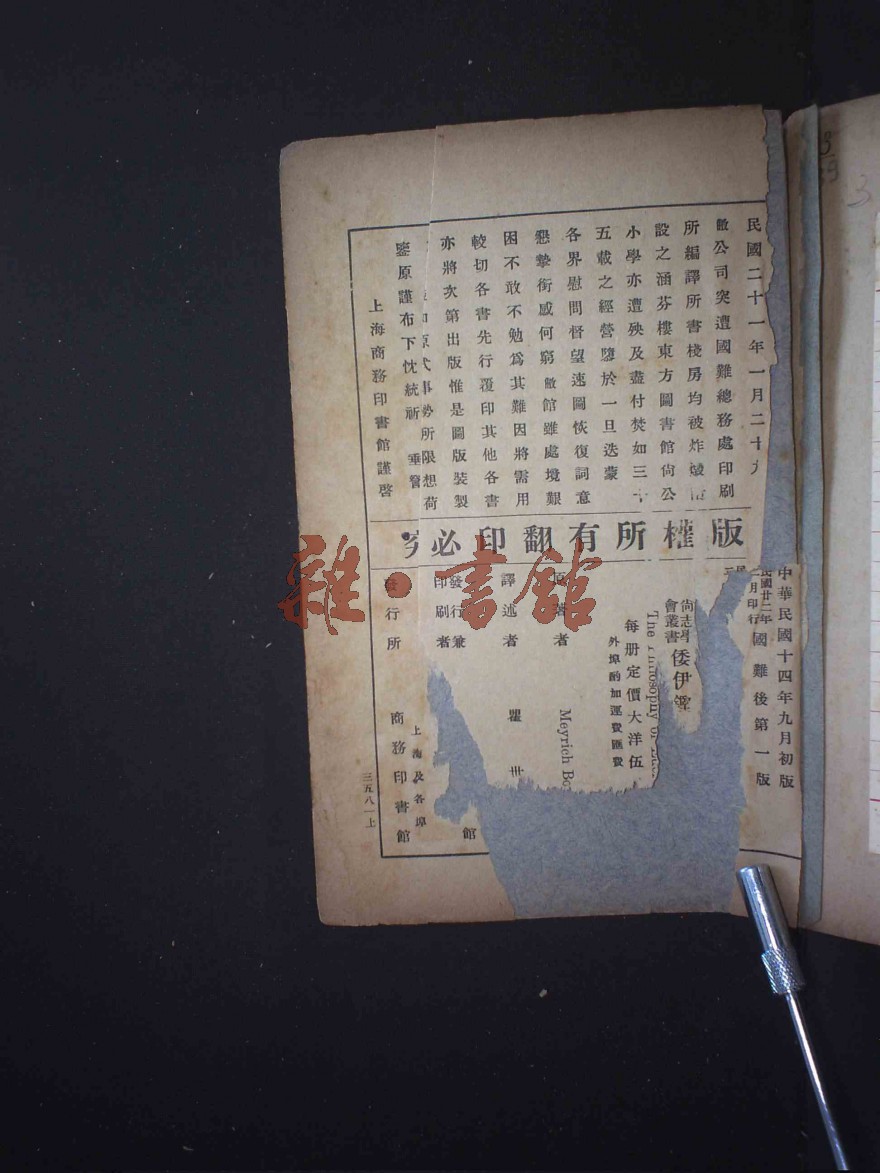 民國二十一年一月二十九
敝公司突遭國難總務處印刷
所編譯所書棧房均被炸燬
設之涵芬樓東方圖書館尚公
小學亦遭殃及盡付焚如三十
五載之經營隳於一旦迭蒙
各界慰問督望速圖恢復詞意
懇摯銜感何窮敝館雖處境艱
困不敢不勉爲其難因將需用
較切各書先行覆印其他各書
亦將次第出版惟是圖版裝製
原式事勢所限想荷
鑒原謹布下忱統祈 垂詧
上海商務印書館謹啓
版權所有翻印必究
中華民國十四年九月初版
民國廿二年
二月印行
國難後第一版
尚志學
會叢書
倭伊鏗
The Philosophy of
每册定價大洋伍
外埠酌加運費匯費
原著者 Meyrich Bo
譯述者 瞿
發行兼
印刷者
館
發行所
上海及各埠
商務印書館
三五八一上
雜·書館